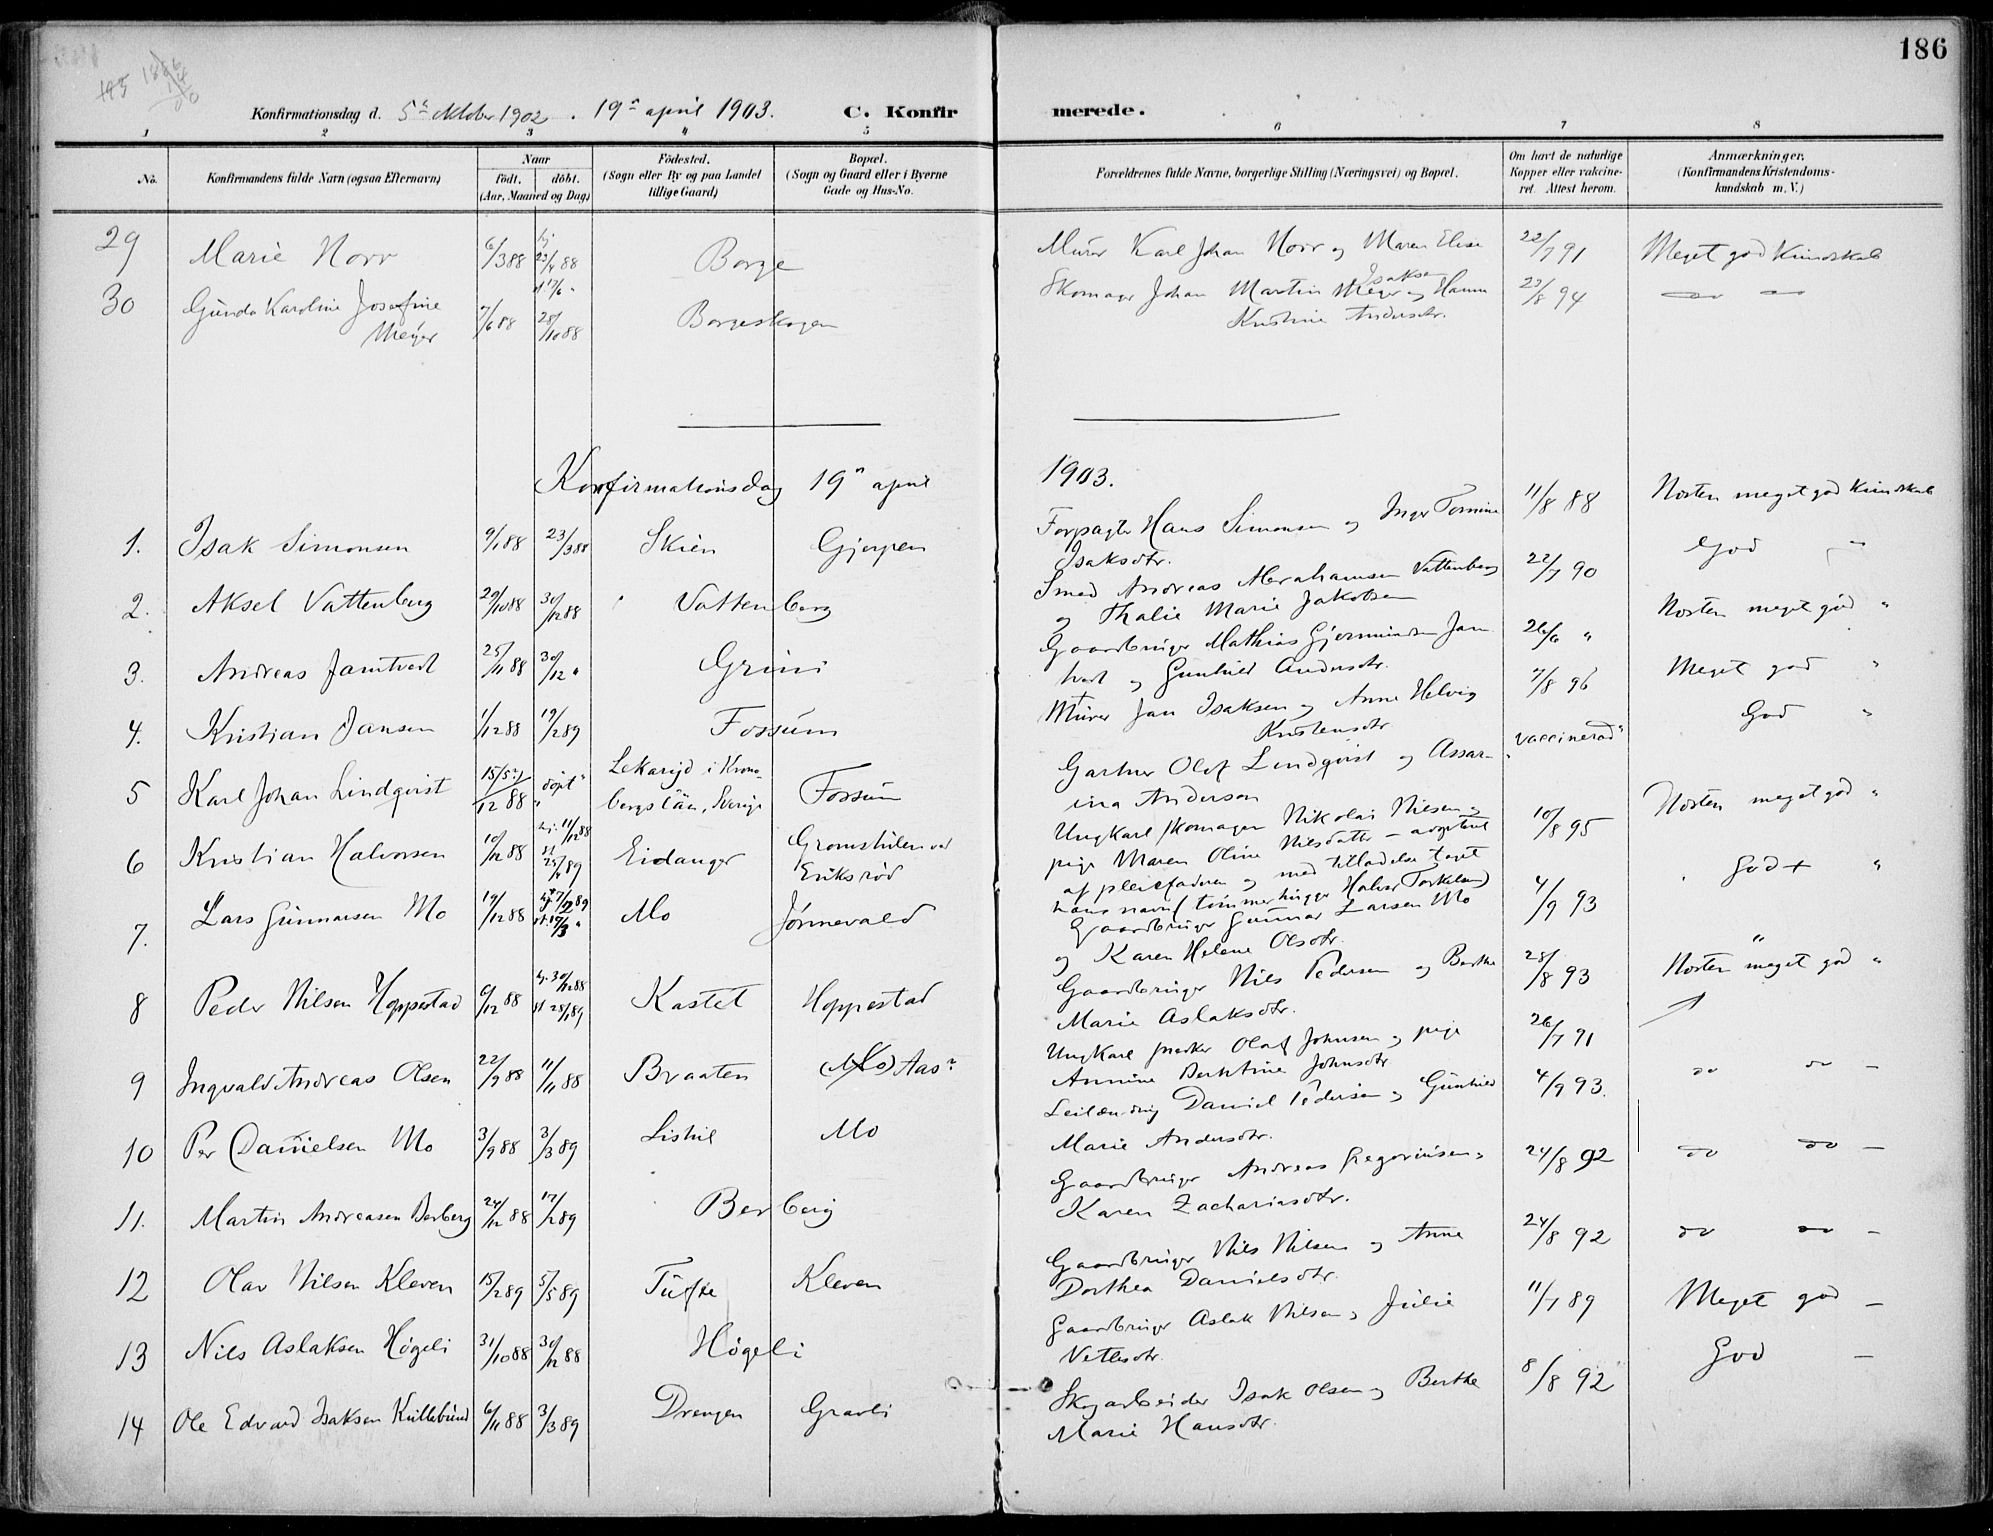 186
Konfirmationsdag d. 5te Oktober 1902. 19de april 1903. C. Konfirmerede.
1 2 3 4 5 6 7 8
No.
Konfirmandens fulde Navn (ogsaa Efternavn)
Naar
födt. döbt.
(Aar, Maaned og Dag)
Födested.
(Sogn eller By og paa Landet
tillige Gaard)
Bopæl.
(Sogn og Gaard eller i Byerne
Gade og Hus-No.
Forældrenes fulde Navne, borgerlige Stilling (Næringsvei) og Bopæl.
Om havt de naturlige
Kopper eller vakcine-
ret. Attest herom.
Anmærkninger.
(Konfirmandens Kristendoms-
kundskab m. V.)
29 Marie Norr 6/3 88 hj 23/4 88 st 17/6 " Borge Murer Karl Johan Norr og Maren Elise Isaksen 22/7 91 Meget god Kundskab
30 Gunda Karoline Josefine Meyer 7/6 88 28/10 88 Borgeskogen Skomager Johan Martin Meyer og Hanne
Kristine Andersdtr. 23/8 94 do do
Konfirmationsdag 19de april 1903.
1. Isak Simonsen 9/1 88 23/3 88 Skien Gjerpen Forpagter Hans Simonsen og Inger Tomine
Isaksdtr. 11/8 88 Næsten meget god Kundskab
2. Aksel Vattenberg 29/10 88 30/12 88 Vattenberg Smed Andreas Abrahamsen Vattenberg
og Thalie Marie Jakobsen 22/7 90 God "
3. Andreas Jamtvedt 25/11 88 30/12 " Grini Gaardbruger Mathias Gjermundsen Jam
tvedt og Gunhild Andersdtr. 26/6 " Næsten meget god "
4. Kristian Jansen 1/12 88 19/2 89 Fossum Murer Jan Isaksen og Anne Helvig
Kristensdtr. 7/8 96 Meget god "
5 Karl Johan Lindqvist 12 88 döpt Lekaryd i Krono-
bergs län, Sverige Fossum Gartner Olof Lindqvist og Assar-
ina Anderson "vaccinerad" God "
6 Kristian Halvorsen 10/12 88 hj. 11/12 88 st 25/4 89 Eidanger Gromstulen ved
Eriksrød Ungkarl skomager Nikolai Nilsen og
pige Maren Oline Nilsdatter – adopteret
af pleiefaderen og med tilladelse taget
hans navn (tømmerhugger Halvor Torkelsen) 10/8 95 Næsten meget god "
7. Lars Gunnarsen Mo 19/12 88 Mo Jønnevald Gaardbruger Gunnar Larsen Mo
og Karen Helene Olsdtr. 4/9 93 God + "
8 Peder Nilsen Hoppestad 6/12 88 hj. 30/12 88 st 28/1 89 Kastet Hoppestad Gaardbruger Nils Pedersen og Berthe
Marie Aslaksdtr. 28/8 93 Næsten meget god "
9 Ingvald Andreas Olsen 22/9 88 11/11 88 Braaten (Mo) Aas Ungkarl snedker Olaf Johnsen og pige
Annine Berntine Johnsdtr 26/7 91
10 Per Danielsen Mo 3/9 88 3/3 89 Lishil Mo Leilænding Daniel Pedersen og Gunhild
Marie Andersdtr. 4/9 93. do do –
11. Martin Andreasen Berberg 24/12 88 17/2 89 Berberg Gaardbruger Andreas Gregoriusen og
Karen Zachariasdtr. 24/8 92 do do –
12 Olav Nilsen Kleven 15/2 89 5/5 89 Tufte Kleven Gaardbruger Nils Nilsen og Anne
Dorthea Danielsdtr. 24/8 92 do do –
13 Nils Aslaksen Høgeli 31/10 88 30/12 88 Høgeli Gaardbruger Aslak Nilsen og Julie
Vetlesdtr. 11/7 89 Meget god –
14 Ole Edvard Isaksen Kullebund 6/11 88 3/3 89 Drengen Gravli Skogarbeider Isak Olsen og Berthe
Marie Hansdtr. 8/8 92 God –